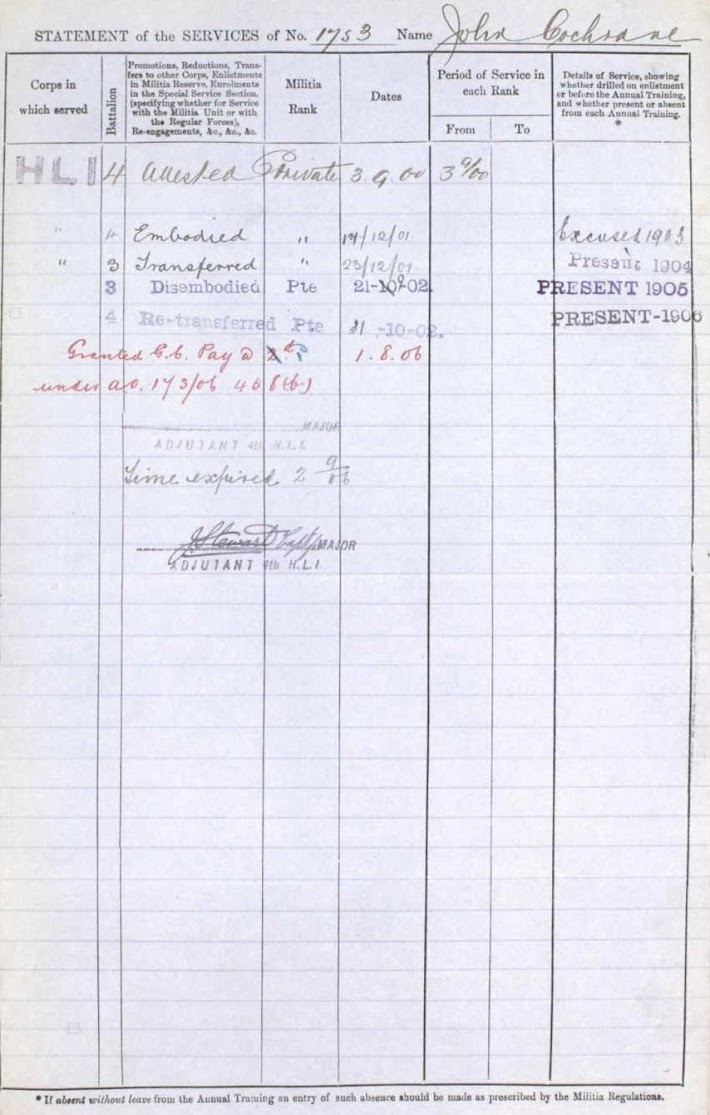 STATEMENT of the SERVICES of No. 1753 Name John Cochrane
Corps in which served
Battalion
Promotions, Reductions, Trans-
fers to other Corps, Enlistments
in Militia Reserve, Enrolments
in the Special Service Section,
(specifying whether for Service
with the Militia Unit or with
the Regular Forces),
Re-engagements, &c., &c., &c.
Militia Rank
Dates
Period of Service in
each Rank
From To
Details of Service, showing
whether drilled on enlistment
or before the Annual Training,
and whether present or absent
from each Annual Training.
*
HLI 4 Attested Private 3.9.00 3 9/00
" 4 Embodied " /12/01 Excused 1903
" 3 Transferred " 23/12/01 Present 1904
3 Disembodied Pte 21-10-02. PRESENT 1905
4 Re-transferred Pte 21-10-02. PRESENT-1906
Granted G.C. Pay @ 1.8.06
under A.O. 173/06
MAJOR
ADJUTANT 4th H.L.I.
Time expired 2 9/06
J Stewart Capt MAJOR
ADJUTANT 4th H.L.I.
* If absent without leave from the Annual Training an entry of such absence should be made as prescribed by the Militia Regulations.